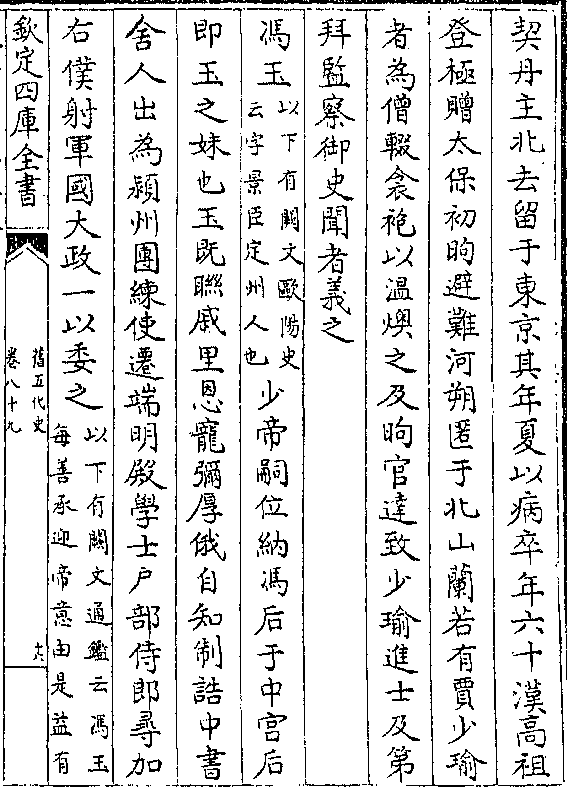 契丹主北去留于東京其年夏以病卒年六十漢高祖
登極贈太保初昫避難河朔匿于北山蘭若有賈少瑜
者為僧輟衾袍以温燠之及昫官達致少瑜進士及第
拜監察御史聞者義之
馮玉以下有闕文歐陽史
云字景臣定州人也少帝嗣位納馮后于中宮后
即玉之妹也玉既聯戚里恩寵彌厚俄自知制誥中書
舍人出為潁州團練使遷端明殿學士户部侍郎尋加
右僕射軍國大政一以委之以下有闕文通鑑云馮玉
每善承迎帝意由是益有
欽定四庫全書
舊五代史
卷八十九
十六